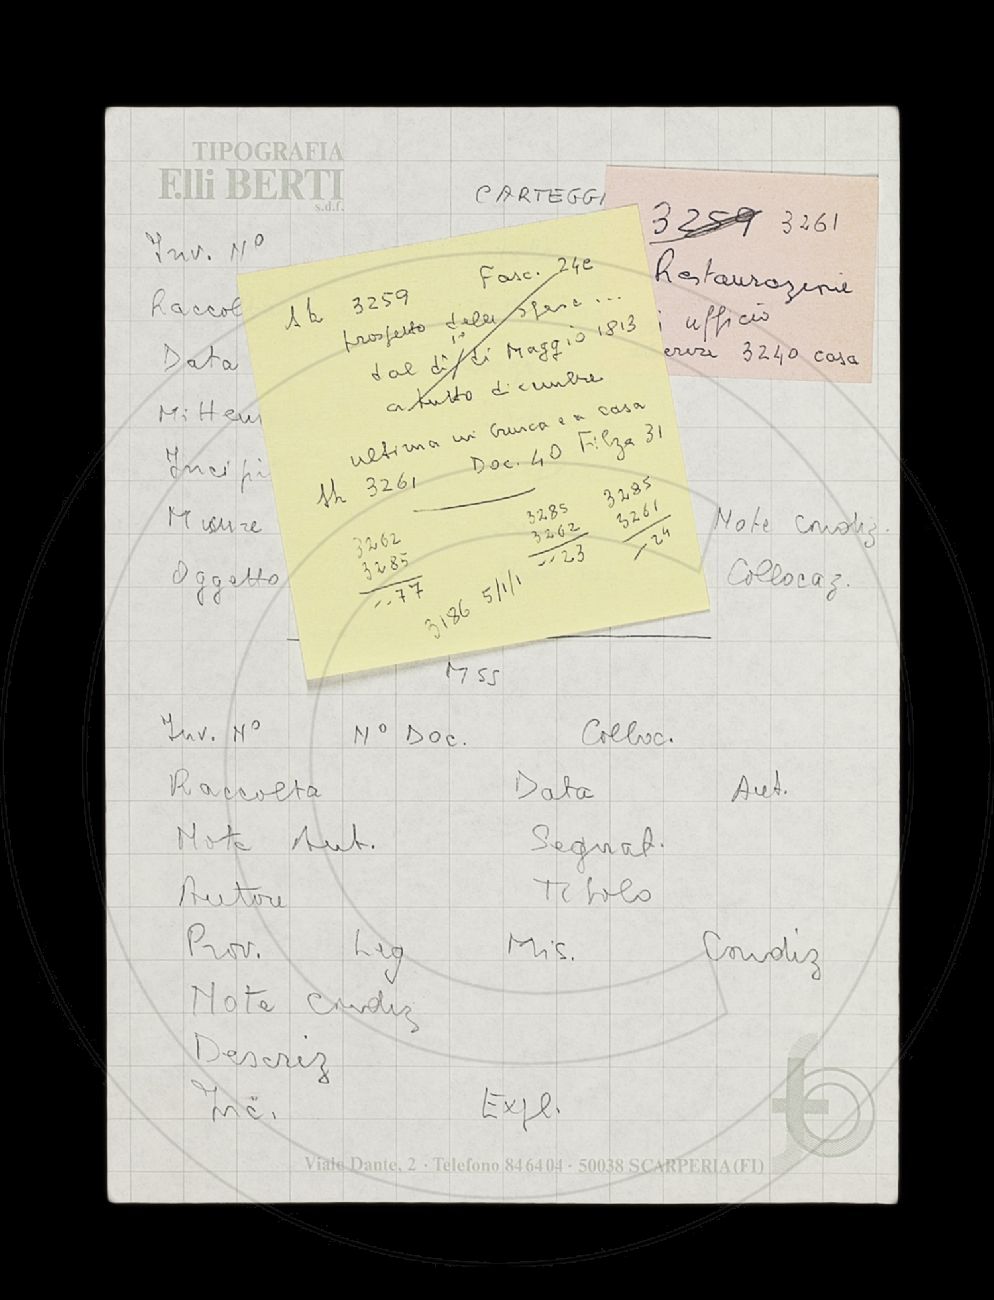 TIPOGRAFIA
F.lli BERTI
s.d.f.
CARTEGGI
Inv. N°
Raccol
Data
Mitten
Incipi
Misure
Note condiz.
Oggetto
Collocaz.
3259 3261
Restaurazione
i ufficio
3240 casa
3259 Fasc. 24e
prospetto delle spese ...
dal dì 1° di Maggio 1813
a tutto dicembre
ultima in busca e a casa
3261 Doc. 40 Filza 31
3262
3285
--77
3285
3262
--23
3285
3261
--24
3186 5/1/1
Mss
Inv. N° N° Doc. Colloc.
Raccolta Data Aut.
Note Aut. Segnat.
Autore Titolo
Prov. Leg Mis. Condiz
Note condiz
Descriz
Inc. Expl.
Viale Dante, 2 · Telefono 846404 · 50038 SCARPERIA (FI)